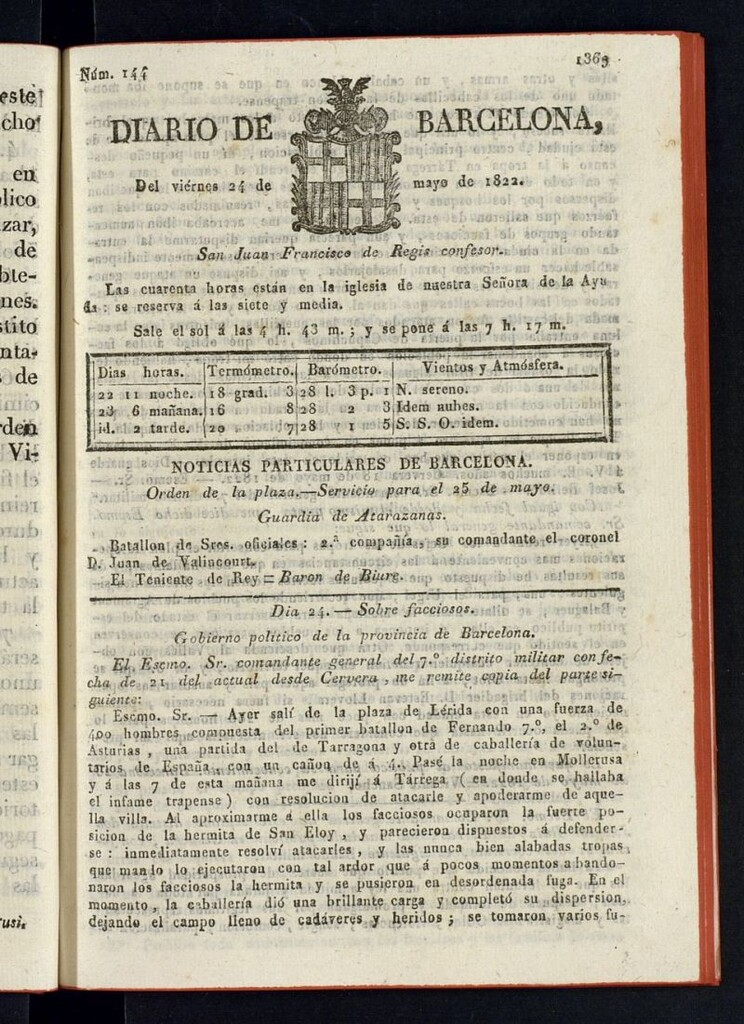 este
cho
en
lico
zar,
de
bte-
nes.
tito
nta-
de
den
Vi-
usi.
Núm. 144
1369
DIARIO DE BARCELONA,
Del viérnes 24 de mayo de 1822.
San Juan Francisco de Regis confesor.
Las cuarenta horas están en la iglesia de nuestra Señora de la Ayu
da: se reserva á las siete y media.
Sale el sol á las 4 h. 43 m.; y se pone á las 7 h. 17 m.
Dias horas. Termómetro. Barómetro. Vientos y Atmósfera.
22 11 noche. 18 grad. 3 28 l. 3 p. 1 N. sereno.
23 6 mañana. 16 8 28 2 3 Idem nubes.
id. 2 tarde. 20 7 28 1 5 S. S. O. idem.
NOTICIAS PARTICULARES DE BARCELONA.
Orden de la plaza.—Servicio para el 25 de mayo.
Guardia de Atarazanas.
Batallon de Sres. oficiales: 2.ª compañía, su comandante el coronel
D. Juan de Valincourt.
El Teniente de Rey = Baron de Biure.
Dia 24. — Sobre facciosos.
Gobierno político de la provincia de Barcelona.
El Escmo. Sr. comandante general del 7.º distrito militar con fe-
cha de 21 del actual desde Cervera, me remite copia del parte si-
guiente:
Escmo. Sr. — Ayer salí de la plaza de Lérida con una fuerza de
400 hombres compuesta del primer batallon de Fernando 7.º, el 2.º de
Asturias, una partida del de Tarragona y otra de caballería de volun-
tarios de España, con un cañon de á 4. Pasé la noche en Mollerusa
y á las 7 de esta mañana me dirijí á Tárrega (en donde se hallaba
el infame trapense) con resolucion de atacarle y apoderarme de aque-
lla villa. Al aproximarme á ella los facciosos ocuparon la fuerte po-
sicion de la hermita de San Eloy, y parecieron dispuestos á defender-
se: inmediatamente resolví atacarles, y las nunca bien alabadas tropas
que mando lo ejecutaron con tal ardor que á pocos momentos abando-
naron los facciosos la hermita y se pusieron en desordenada fuga. En el
momento, la caballería dió una brillante carga y completó su dispersion,
dejando el campo lleno de cadáveres y heridos; se tomaron varios fu-